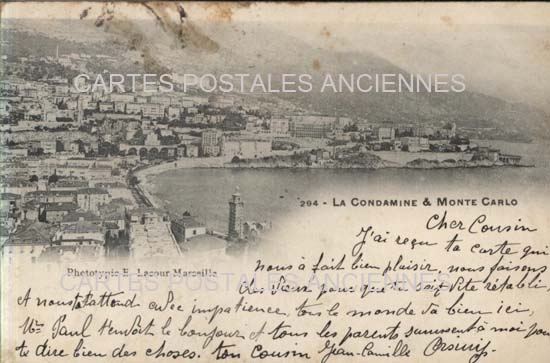 CARTES POSTALES ANCIENNES
294 - LA CONDAMINE & MONTE CARLO
Cher Cousin
J'ai reçu ta carte qui
nous à fait bien plaisir, nous faisons
des vœux pour que tu sois vite rétabli,
Phototypie E. Lacour Marseille
CARTES POSTALES ANCIENNES
et nous attendons avec impatience, tout le monde va bien ici,
Mr Paul t'envoit le bonjour et tous les parents s'unissent à moi pour
te dire bien des choses. ton Cousin Jean-Camille